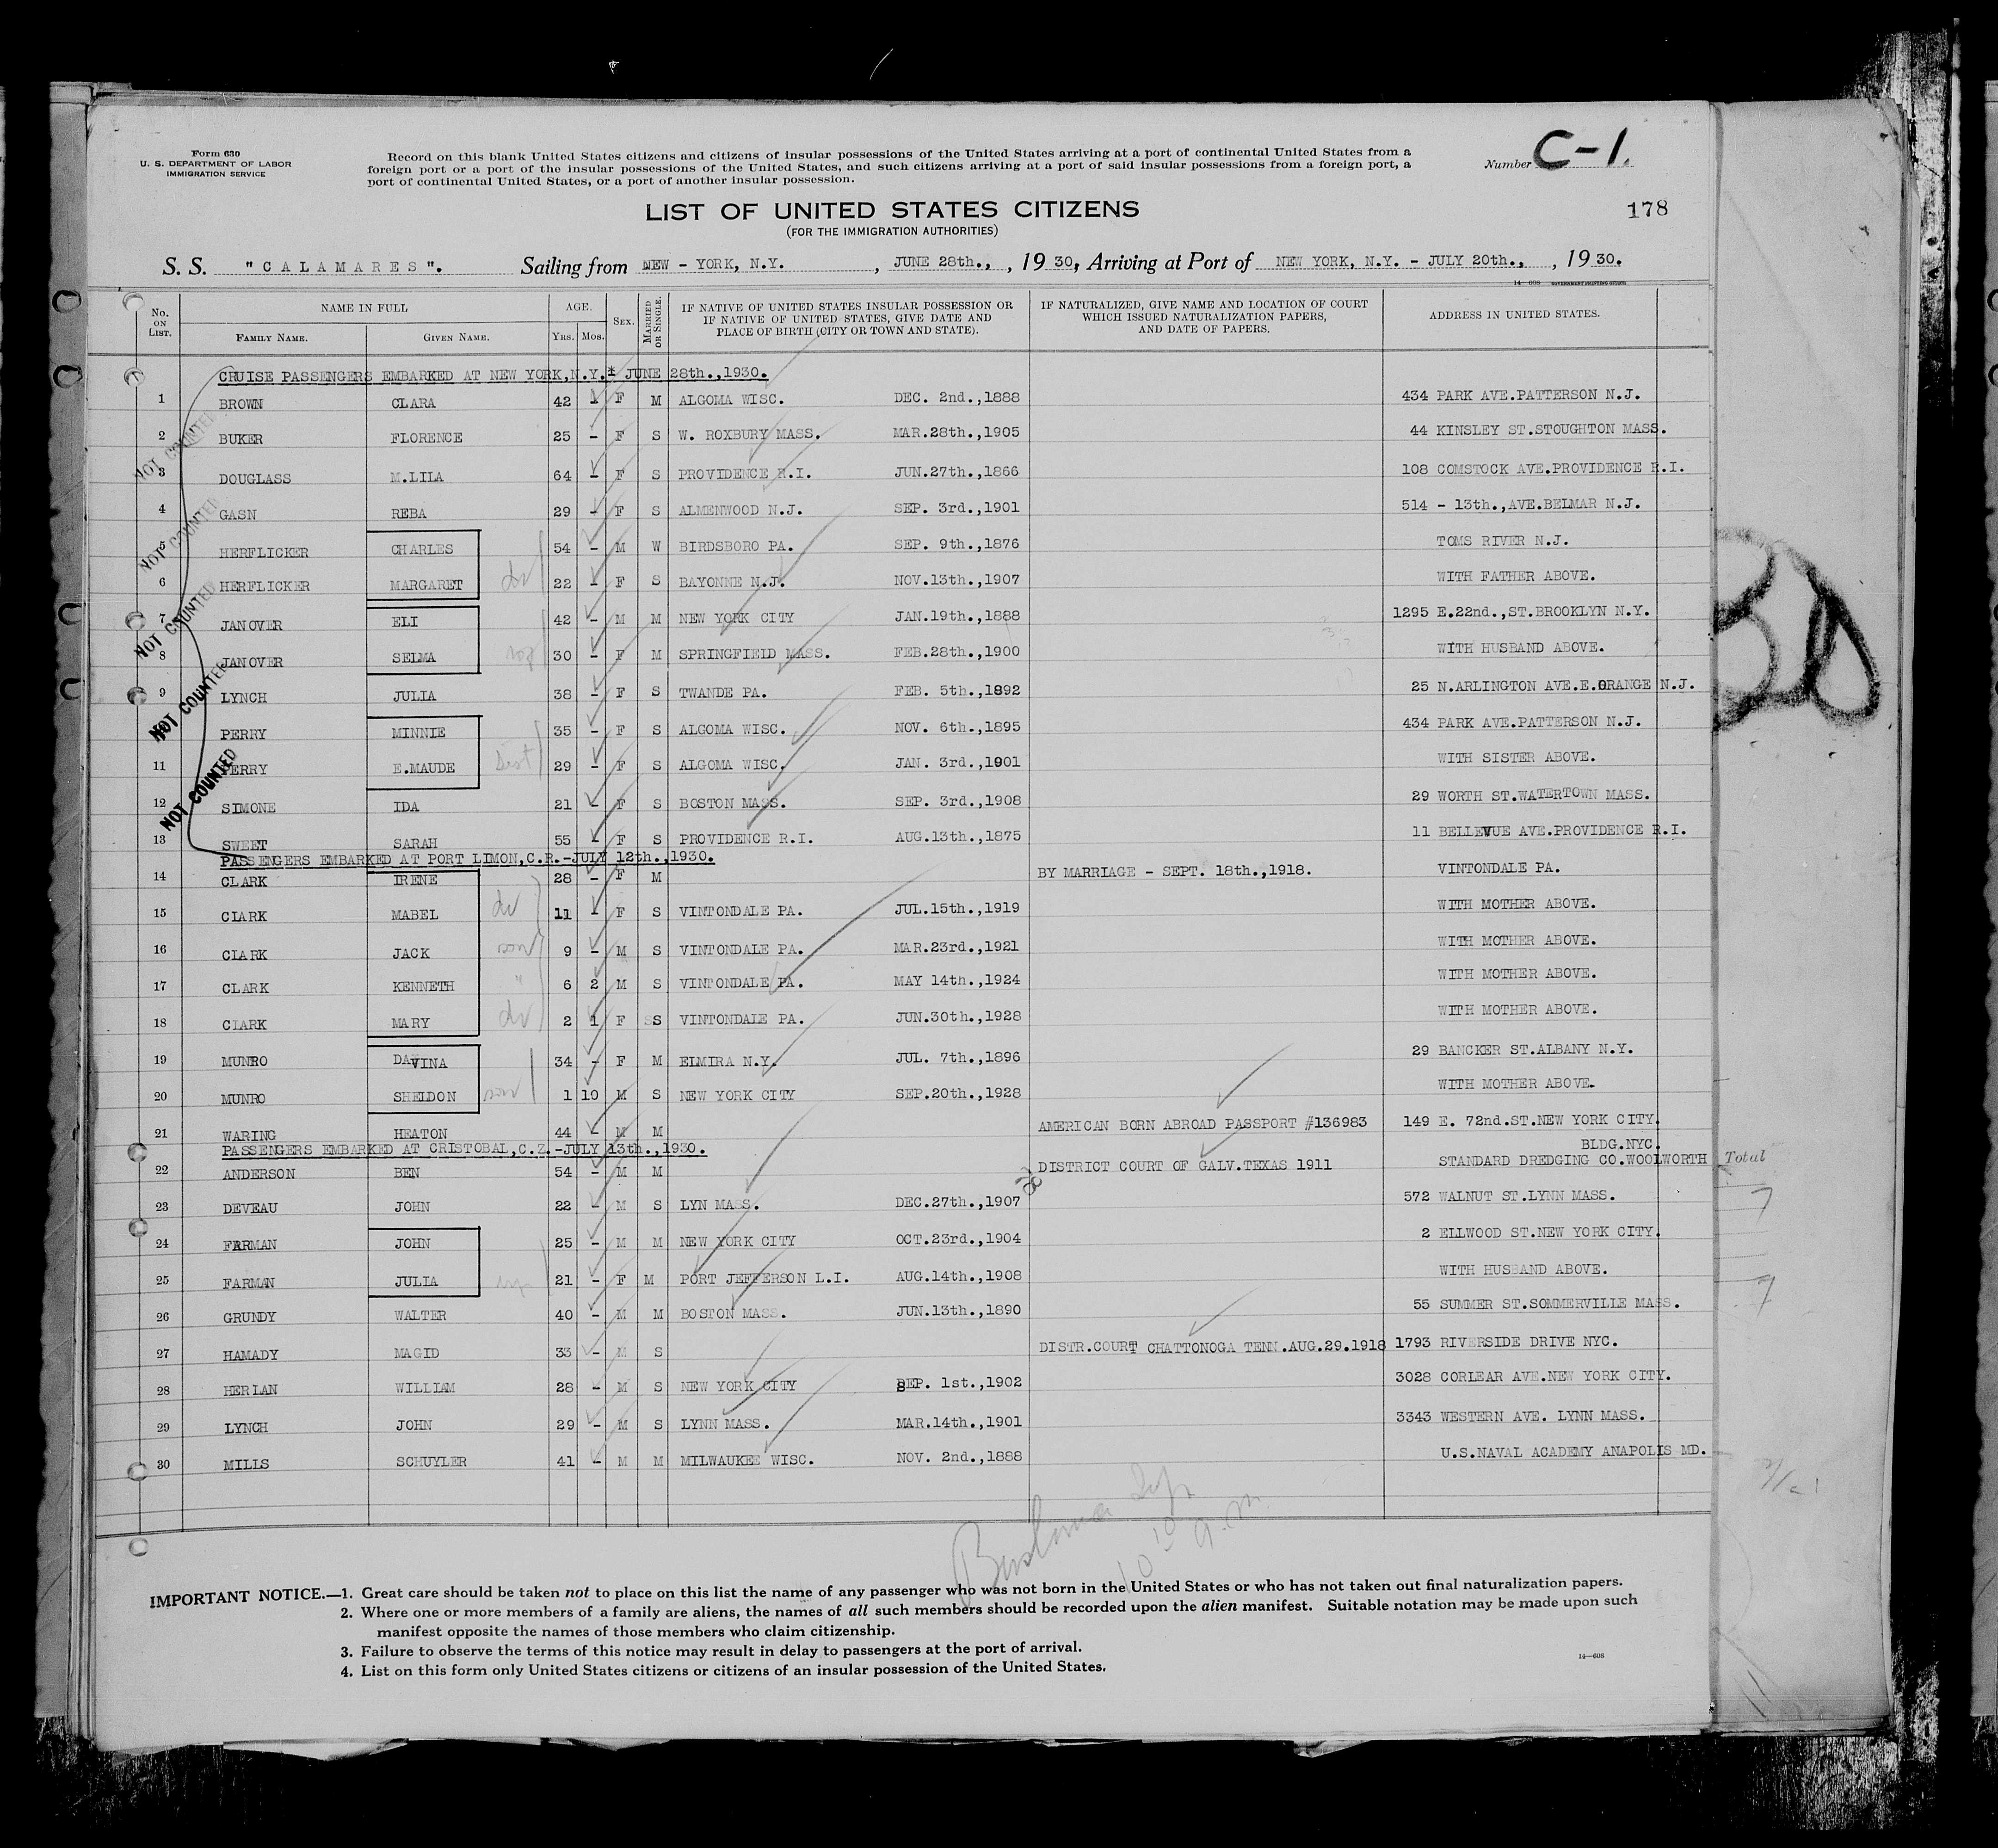 Form 630
U. S. DEPARTMENT OF LABOR
IMMIGRATION SERVICE
Record on this blank United States citizens and citizens of insular possessions of the United States arriving at a port of continental United States from a
foreign port or a port of the insular possessions of the United States, and such citizens arriving at a port of said insular possessions from a foreign port, a
port of continental United States, or a port of another insular possession.
Number C-1.
LIST OF UNITED STATES CITIZENS
(FOR THE IMMIGRATION AUTHORITIES)
178
S. S. "CALAMARES". Sailing from NEW - YORK, N.Y. , JUNE 28th., , 1930, Arriving at Port of NEW YORK, N.Y. - JULY 20th., , 1930.
14—608 GOVERNMENT PRINTING OFFICE
No. ON LIST. NAME IN FULL FAMILY NAME. GIVEN NAME. AGE. Yrs. Mos. SEX. MARRIED OR SINGLE. IF NATIVE OF UNITED STATES INSULAR POSSESSION OR IF NATIVE OF UNITED STATES, GIVE DATE AND PLACE OF BIRTH (CITY OR TOWN AND STATE). IF NATURALIZED, GIVE NAME AND LOCATION OF COURT WHICH ISSUED NATURALIZATION PAPERS, AND DATE OF PAPERS. ADDRESS IN UNITED STATES.
CRUISE PASSENGERS EMBARKED AT NEW YORK,N.Y.* JUNE 28th.,1930.
1 BROWN CLARA 42 - F M ALGOMA WISC. DEC. 2nd.,1888 434 PARK AVE.PATTERSON N.J.
2 BUKER FLORENCE 25 - F S W. ROXBURY MASS. MAR.28th.,1905 44 KINSLEY ST.STOUGHTON MASS.
3 DOUGLASS M.LILA 64 - F S PROVIDENCE R.I. JUN.27th.,1866 108 COMSTOCK AVE.PROVIDENCE R.I.
4 GASN REBA 29 - F S ALMENWOOD N.J. SEP. 3rd.,1901 514 - 13th.,AVE.BELMAR N.J.
5 HERFLICKER CHARLES 54 - M W BIRDSBORO PA. SEP. 9th.,1876 TOMS RIVER N.J.
6 HERFLICKER MARGARET 22 - F S BAYONNE N.J. NOV.13th.,1907 WITH FATHER ABOVE.
7 JANOVER ELI 42 - M M NEW YORK CITY JAN.19th.,1888 1295 E.22nd.,ST.BROOKLYN N.Y.
8 JANOVER SELMA 30 - F M SPRINGFIELD MASS. FEB.28th.,1900 WITH HUSBAND ABOVE.
9 LYNCH JULIA 38 - F S TWANDE PA. FEB. 5th.,1892 25 N.ARLINGTON AVE.E.ORANGE N.J.
PERRY MINNIE 35 - F S ALGOMA WISC. NOV. 6th.,1895 434 PARK AVE.PATTERSON N.J.
11 PERRY E.MAUDE 29 - F S ALGOMA WISC. JAN. 3rd.,1901 WITH SISTER ABOVE.
12 SIMONE IDA 21 - F S BOSTON MASS. SEP. 3rd.,1908 29 WORTH ST.WATERTOWN MASS.
13 SWEET SARAH 55 - F S PROVIDENCE R.I. AUG.13th.,1875 11 BELLEVUE AVE.PROVIDENCE R.I.
NOT COUNTED
NOT COUNTED
NOT COUNTED
NOT COUNTED
NOT COUNTED
PASSENGERS EMBARKED AT PORT LIMON,C.R.-JULY 12th.,1930.
14 CLARK IRENE 28 - F M BY MARRIAGE - SEPT. 18th.,1918. VINTONDALE PA.
15 CLARK MABEL 11 - F S VINTONDALE PA. JUL.15th.,1919 WITH MOTHER ABOVE.
16 CLARK JACK son 9 - M S VINTONDALE PA. MAR.23rd.,1921 WITH MOTHER ABOVE.
17 CLARK KENNETH " 6 2 M S VINTONDALE PA. MAY 14th.,1924 WITH MOTHER ABOVE.
18 CLARK MARY 2 1 F S VINTONDALE PA. JUN.30th.,1928 WITH MOTHER ABOVE.
19 MUNRO DAVINA 34 - F M ELMIRA N.Y. JUL. 7th.,1896 29 BANCKER ST.ALBANY N.Y.
20 MUNRO SHELDON son 1 10 M S NEW YORK CITY SEP.20th.,1928 WITH MOTHER ABOVE.
21 WARING HEATON 44 - M M AMERICAN BORN ABROAD PASSPORT #136983 149 E. 72nd.ST.NEW YORK CITY.
PASSENGERS EMBARKED AT CRISTOBAL,C.Z.-JULY 13th.,1930. BLDG.NYC.
22 ANDERSON BEN 54 - M M DISTRICT COURT OF GALV.TEXAS 1911 STANDARD DREDGING CO.WOOLWORTH
Total
23 DEVEAU JOHN 22 - M S LYN MASS. DEC.27th.,1907 572 WALNUT ST.LYNN MASS.
24 FARMAN JOHN 25 - M M NEW YORK CITY OCT.23rd.,1904 2 ELLWOOD ST.NEW YORK CITY.
25 FARMAN JULIA 21 - F M PORT JEFFERSON L.I. AUG.14th.,1908 WITH HUSBAND ABOVE.
26 GRUNDY WALTER 40 - M M BOSTON MASS. JUN.13th.,1890 55 SUMMER ST.SOMMERVILLE MASS.
27 HAMADY MAGID 33 - M S DISTR.COURT CHATTONOGA TENN.AUG.29.1918 1793 RIVERSIDE DRIVE NYC.
28 HERLAN WILLIAM 28 - M S NEW YORK CITY SEP. 1st.,1902 3028 CORLEAR AVE.NEW YORK CITY.
29 LYNCH JOHN 29 - M S LYNN MASS. MAR.14th.,1901 3343 WESTERN AVE. LYNN MASS.
30 MILLS SCHUYLER 41 - M M MILWAUKEE WISC. NOV. 2nd.,1888 U.S.NAVAL ACADEMY ANAPOLIS MD.
IMPORTANT NOTICE.—1. Great care should be taken not to place on this list the name of any passenger who was not born in the United States or who has not taken out final naturalization papers.
2. Where one or more members of a family are aliens, the names of all such members should be recorded upon the alien manifest. Suitable notation may be made upon such
manifest opposite the names of those members who claim citizenship.
3. Failure to observe the terms of this notice may result in delay to passengers at the port of arrival.
4. List on this form only United States citizens or citizens of an insular possession of the United States.
14—608